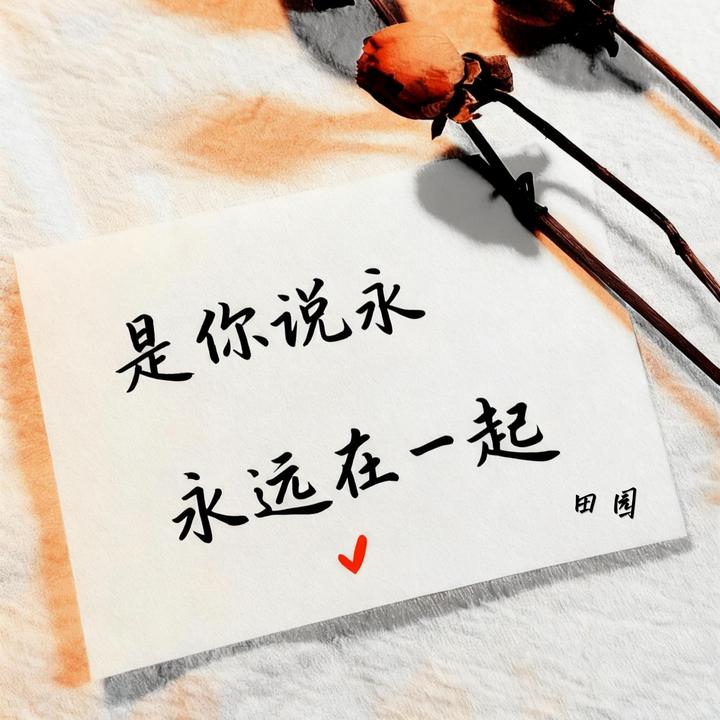 是你说永
永远在一起
田园